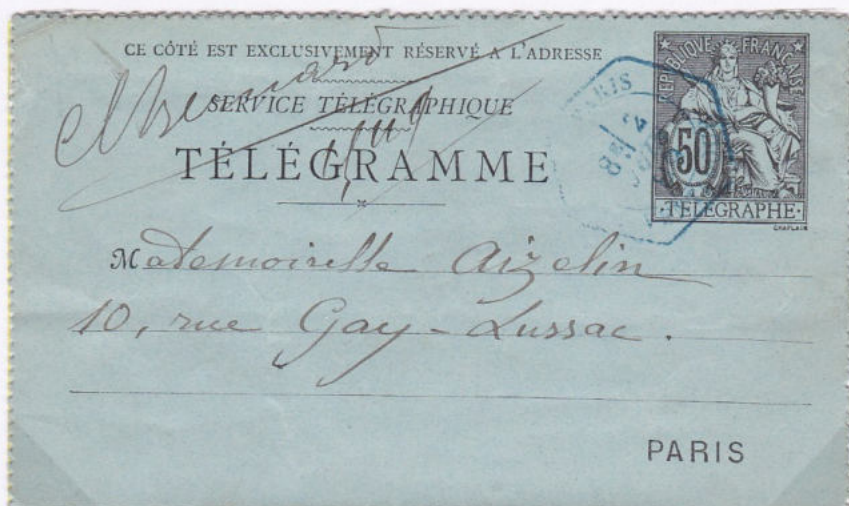 CE CÔTÉ EST EXCLUSIVEMENT RÉSERVÉ A L'ADRESSE
SERVICE TÉLÉGRAPHIQUE
TÉLÉGRAMME
REPUBLIQUE FRANÇAISE
50
TELEGRAPHE
CHAPLAIN
PARIS
Mademoiselle Aizelin
10, rue Gay-Lussac.
PARIS